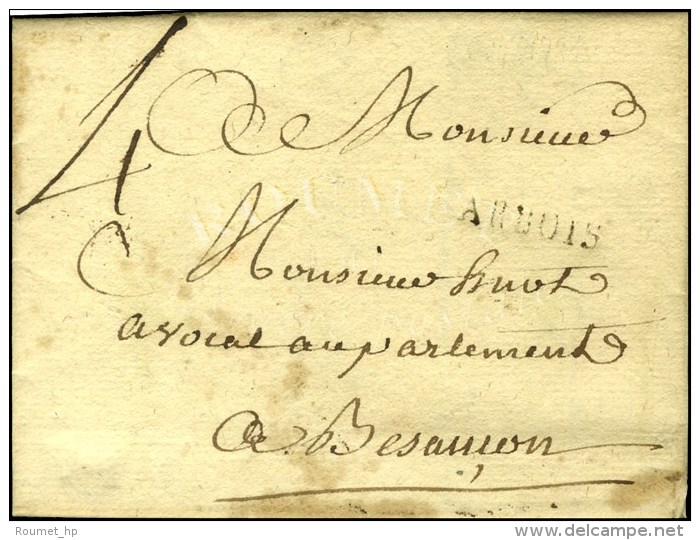 4
A Monsieur
ARBOIS
Monsieur huot
avocat au parlement
A Besançon
Roumet_hp
delcampe.net